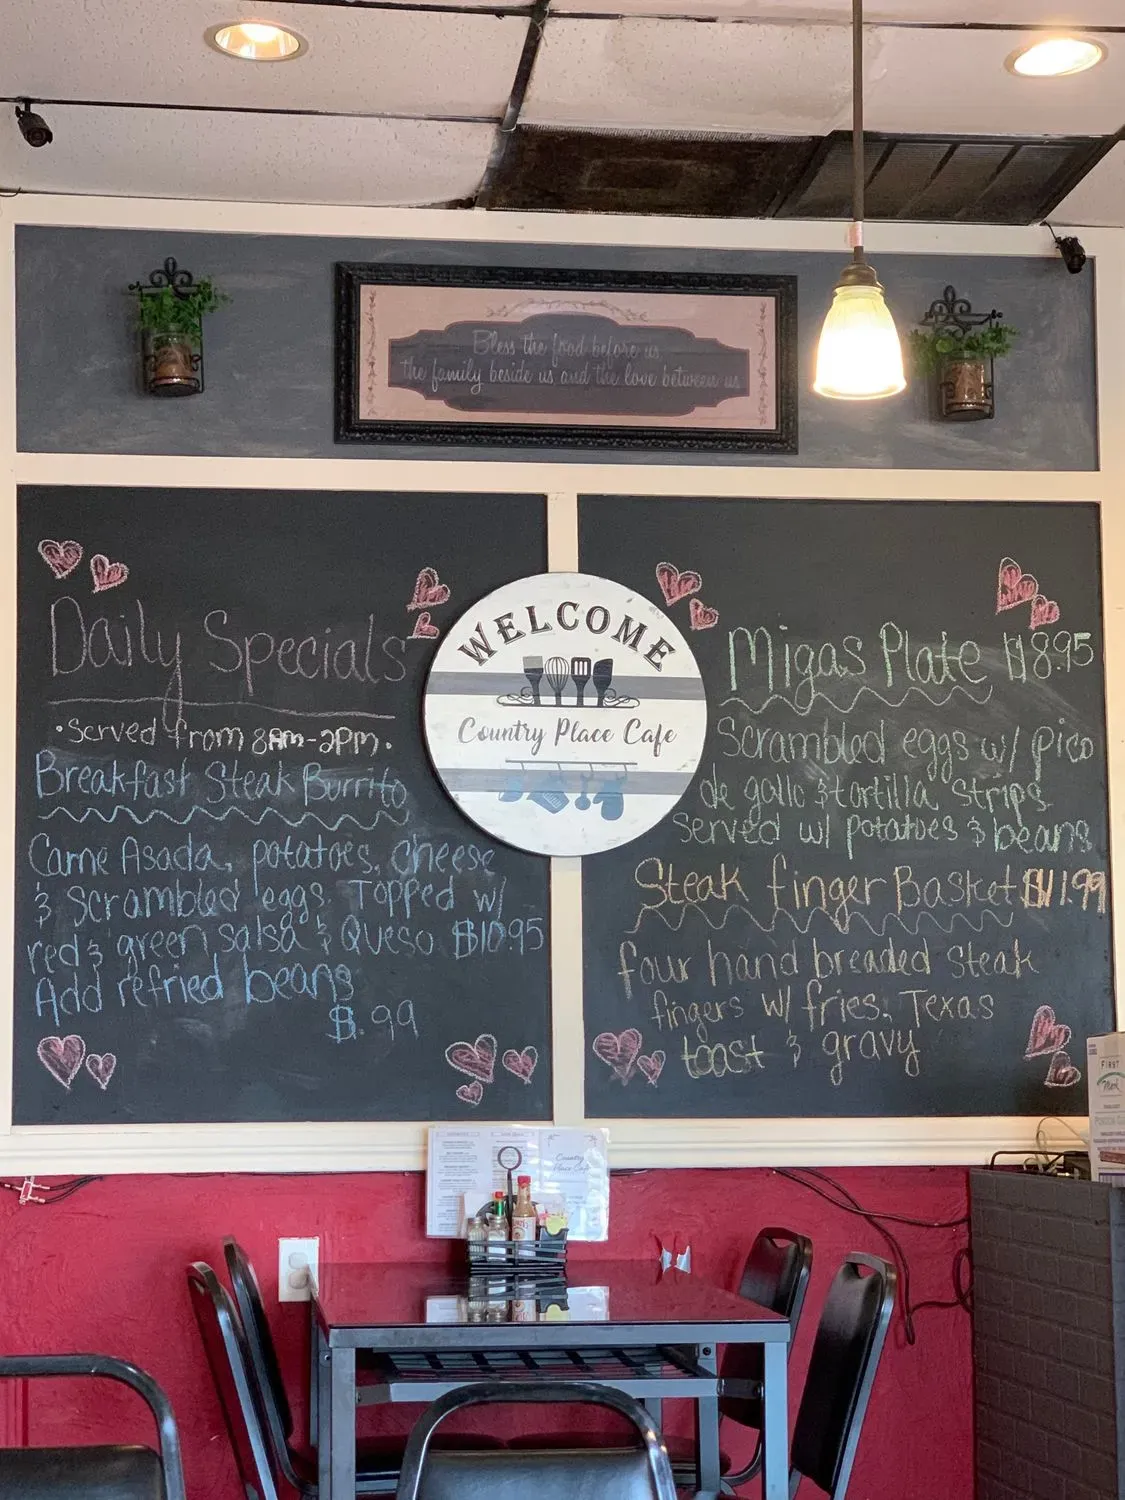 Bless the food before us,
the family beside us and the love between us
WELCOME
Country Place Cafe
Daily Specials
·Served from 8AM-2PM·
Breakfast Steak Burrito
Carne Asada, potatoes, cheese
& scrambled eggs. Topped w/
red & green salsa & Queso $10.95
Add refried beans
$.99
Migas Plate $8.95
Scrambled eggs w/ pico
de gallo & tortilla strips
served w/ potatoes & beans
Steak finger Basket $11.99
four hand breaded steak
fingers w/ fries, Texas
toast & gravy
Country
Place Cafe
FIRST
Mark